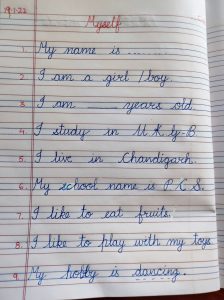 19-1-22
Myself
1. My name is ........
2. I am a girl / boy.
3. I am ___ years old.
4. I study in U.K.G-B
5. I live in Chandigarh.
6. My school name is P.C.S.
7. I like to eat fruits.
8. I like to play with my toys.
9. My hobby is dancing.